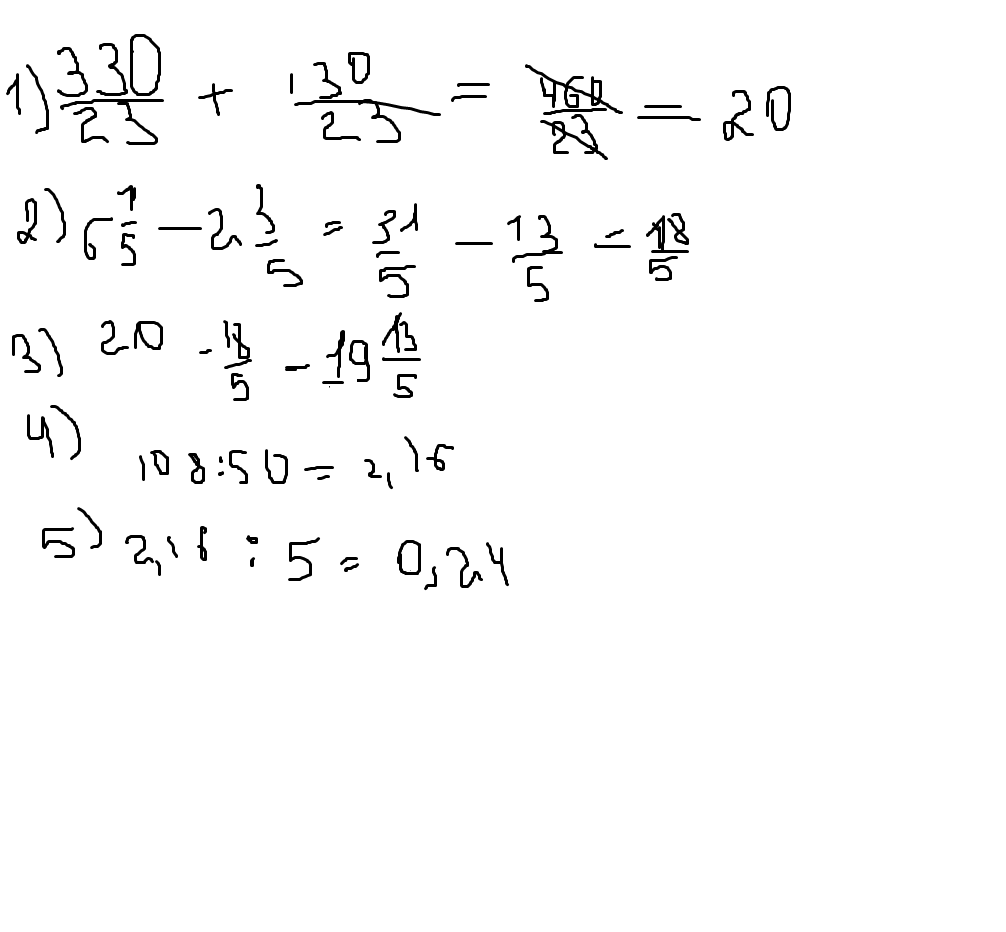 1) 330/23 + 130/23 = 460/23 = 20
2) 6 1/5 - 2 3/5 = 31/5 - 13/5 = 18/5
3) 20 - 18/5 - 19 13/5
4)
108:50 = 2,16
5) 2,16 : 5 = 0,24